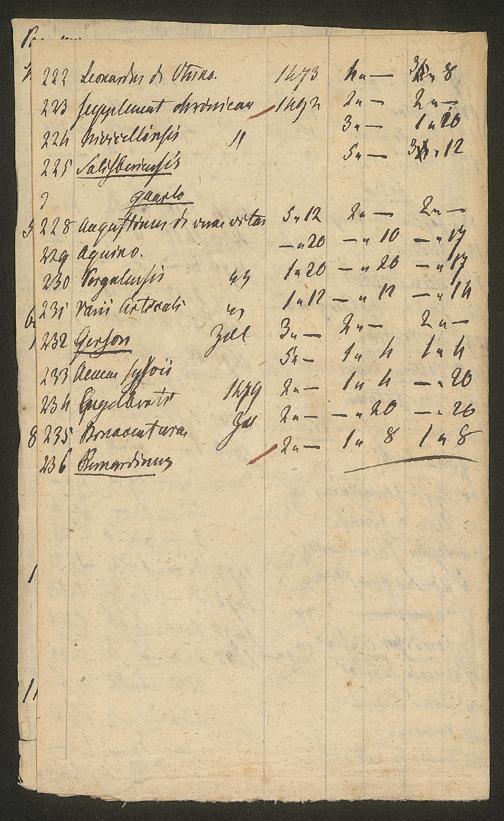 222 Leonardus d Utino. 1473 4 " — 3 " 8
223 Supplement chronicar 1492 2 " — 2 " —
224 11 3 " — 1 " 20
225 Salisberiensis 5 " — 3 " 12
quarto
228 Augustinus de vita 5 " 12 2 " — 2 " —
229 Aquino. — " 20 — " 10 — " 17
230 1 " 20 — " 20 — " 17
231 Varii 1 " 12 — " 12 — " 14
232 Gerson 3 " — 2 " — 2 " —
233 Aeneae Sylvii 5 " — 1 " 4 1 " 4
234 Engelberti 1479 2 " — 1 " 4 — " 20
8 235 Bonaventura 2 " — — " 20 — " 20
236 Bernardinus 2 " — 1 " 8 1 " 8